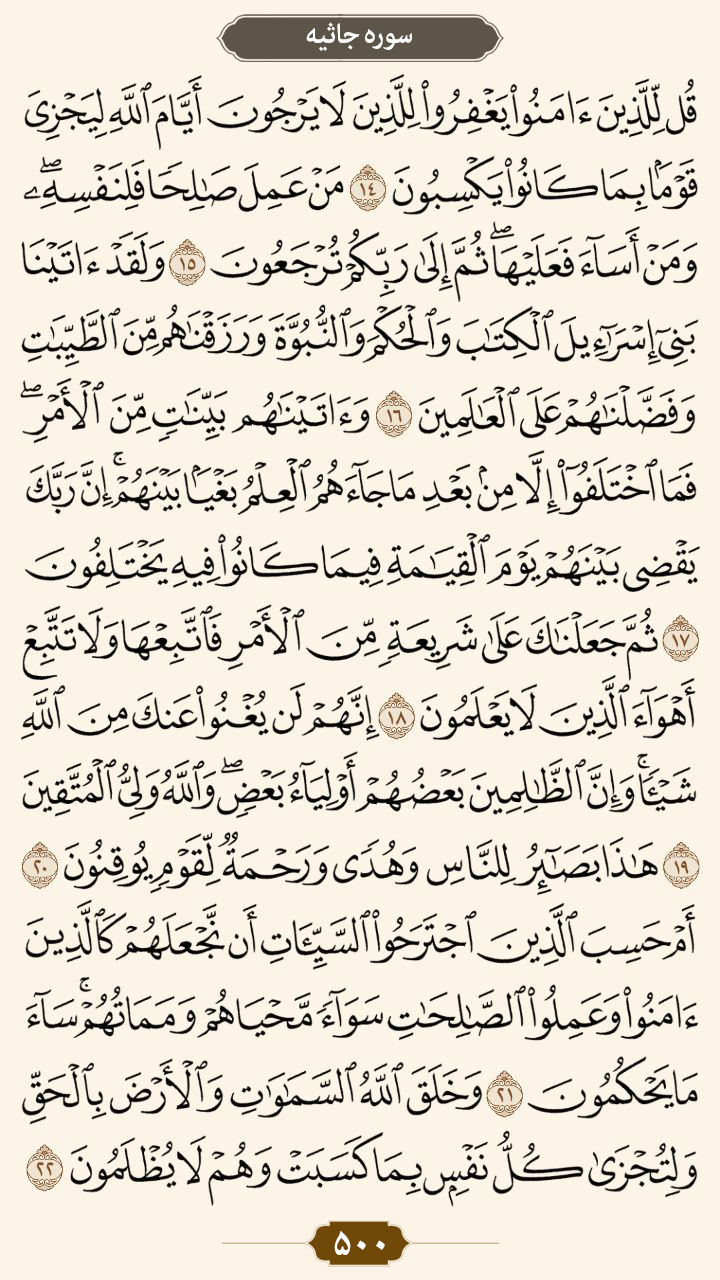 سوره جاثیه
قُل لِّلَّذِينَ ءَامَنُوا۟ يَغْفِرُوا۟ لِلَّذِينَ لَا يَرْجُونَ أَيَّامَ ٱللَّهِ لِيَجْزِىَ
قَوْمًۢا بِمَا كَانُوا۟ يَكْسِبُونَ ١٤ مَنْ عَمِلَ صَٰلِحًا فَلِنَفْسِهِۦ ۖ
وَمَنْ أَسَآءَ فَعَلَيْهَا ۖ ثُمَّ إِلَىٰ رَبِّكُمْ تُرْجَعُونَ ١٥ وَلَقَدْ ءَاتَيْنَا
بَنِىٓ إِسْرَٰٓءِيلَ ٱلْكِتَٰبَ وَٱلْحُكْمَ وَٱلنُّبُوَّةَ وَرَزَقْنَٰهُم مِّنَ ٱلطَّيِّبَٰتِ
وَفَضَّلْنَٰهُمْ عَلَى ٱلْعَٰلَمِينَ ١٦ وَءَاتَيْنَٰهُم بَيِّنَٰتٍ مِّنَ ٱلْأَمْرِ ۖ
فَمَا ٱخْتَلَفُوٓا۟ إِلَّا مِنۢ بَعْدِ مَا جَآءَهُمُ ٱلْعِلْمُ بَغْيًۢا بَيْنَهُمْ ۚ إِنَّ رَبَّكَ
يَقْضِى بَيْنَهُمْ يَوْمَ ٱلْقِيَٰمَةِ فِيمَا كَانُوا۟ فِيهِ يَخْتَلِفُونَ
١٧ ثُمَّ جَعَلْنَٰكَ عَلَىٰ شَرِيعَةٍ مِّنَ ٱلْأَمْرِ فَٱتَّبِعْهَا وَلَا تَتَّبِعْ
أَهْوَآءَ ٱلَّذِينَ لَا يَعْلَمُونَ ١٨ إِنَّهُمْ لَن يُغْنُوا۟ عَنكَ مِنَ ٱللَّهِ
شَيْـًٔا ۚ وَإِنَّ ٱلظَّٰلِمِينَ بَعْضُهُمْ أَوْلِيَآءُ بَعْضٍ ۖ وَٱللَّهُ وَلِىُّ ٱلْمُتَّقِينَ
١٩ هَٰذَا بَصَٰٓئِرُ لِلنَّاسِ وَهُدًى وَرَحْمَةٌ لِّقَوْمٍ يُوقِنُونَ ٢٠
أَمْ حَسِبَ ٱلَّذِينَ ٱجْتَرَحُوا۟ ٱلسَّيِّـَٔاتِ أَن نَّجْعَلَهُمْ كَٱلَّذِينَ
ءَامَنُوا۟ وَعَمِلُوا۟ ٱلصَّٰلِحَٰتِ سَوَآءً مَّحْيَاهُمْ وَمَمَاتُهُمْ ۚ سَآءَ
مَا يَحْكُمُونَ ٢١ وَخَلَقَ ٱللَّهُ ٱلسَّمَٰوَٰتِ وَٱلْأَرْضَ بِٱلْحَقِّ
وَلِتُجْزَىٰ كُلُّ نَفْسٍۭ بِمَا كَسَبَتْ وَهُمْ لَا يُظْلَمُونَ ٢٢
۵۰۰